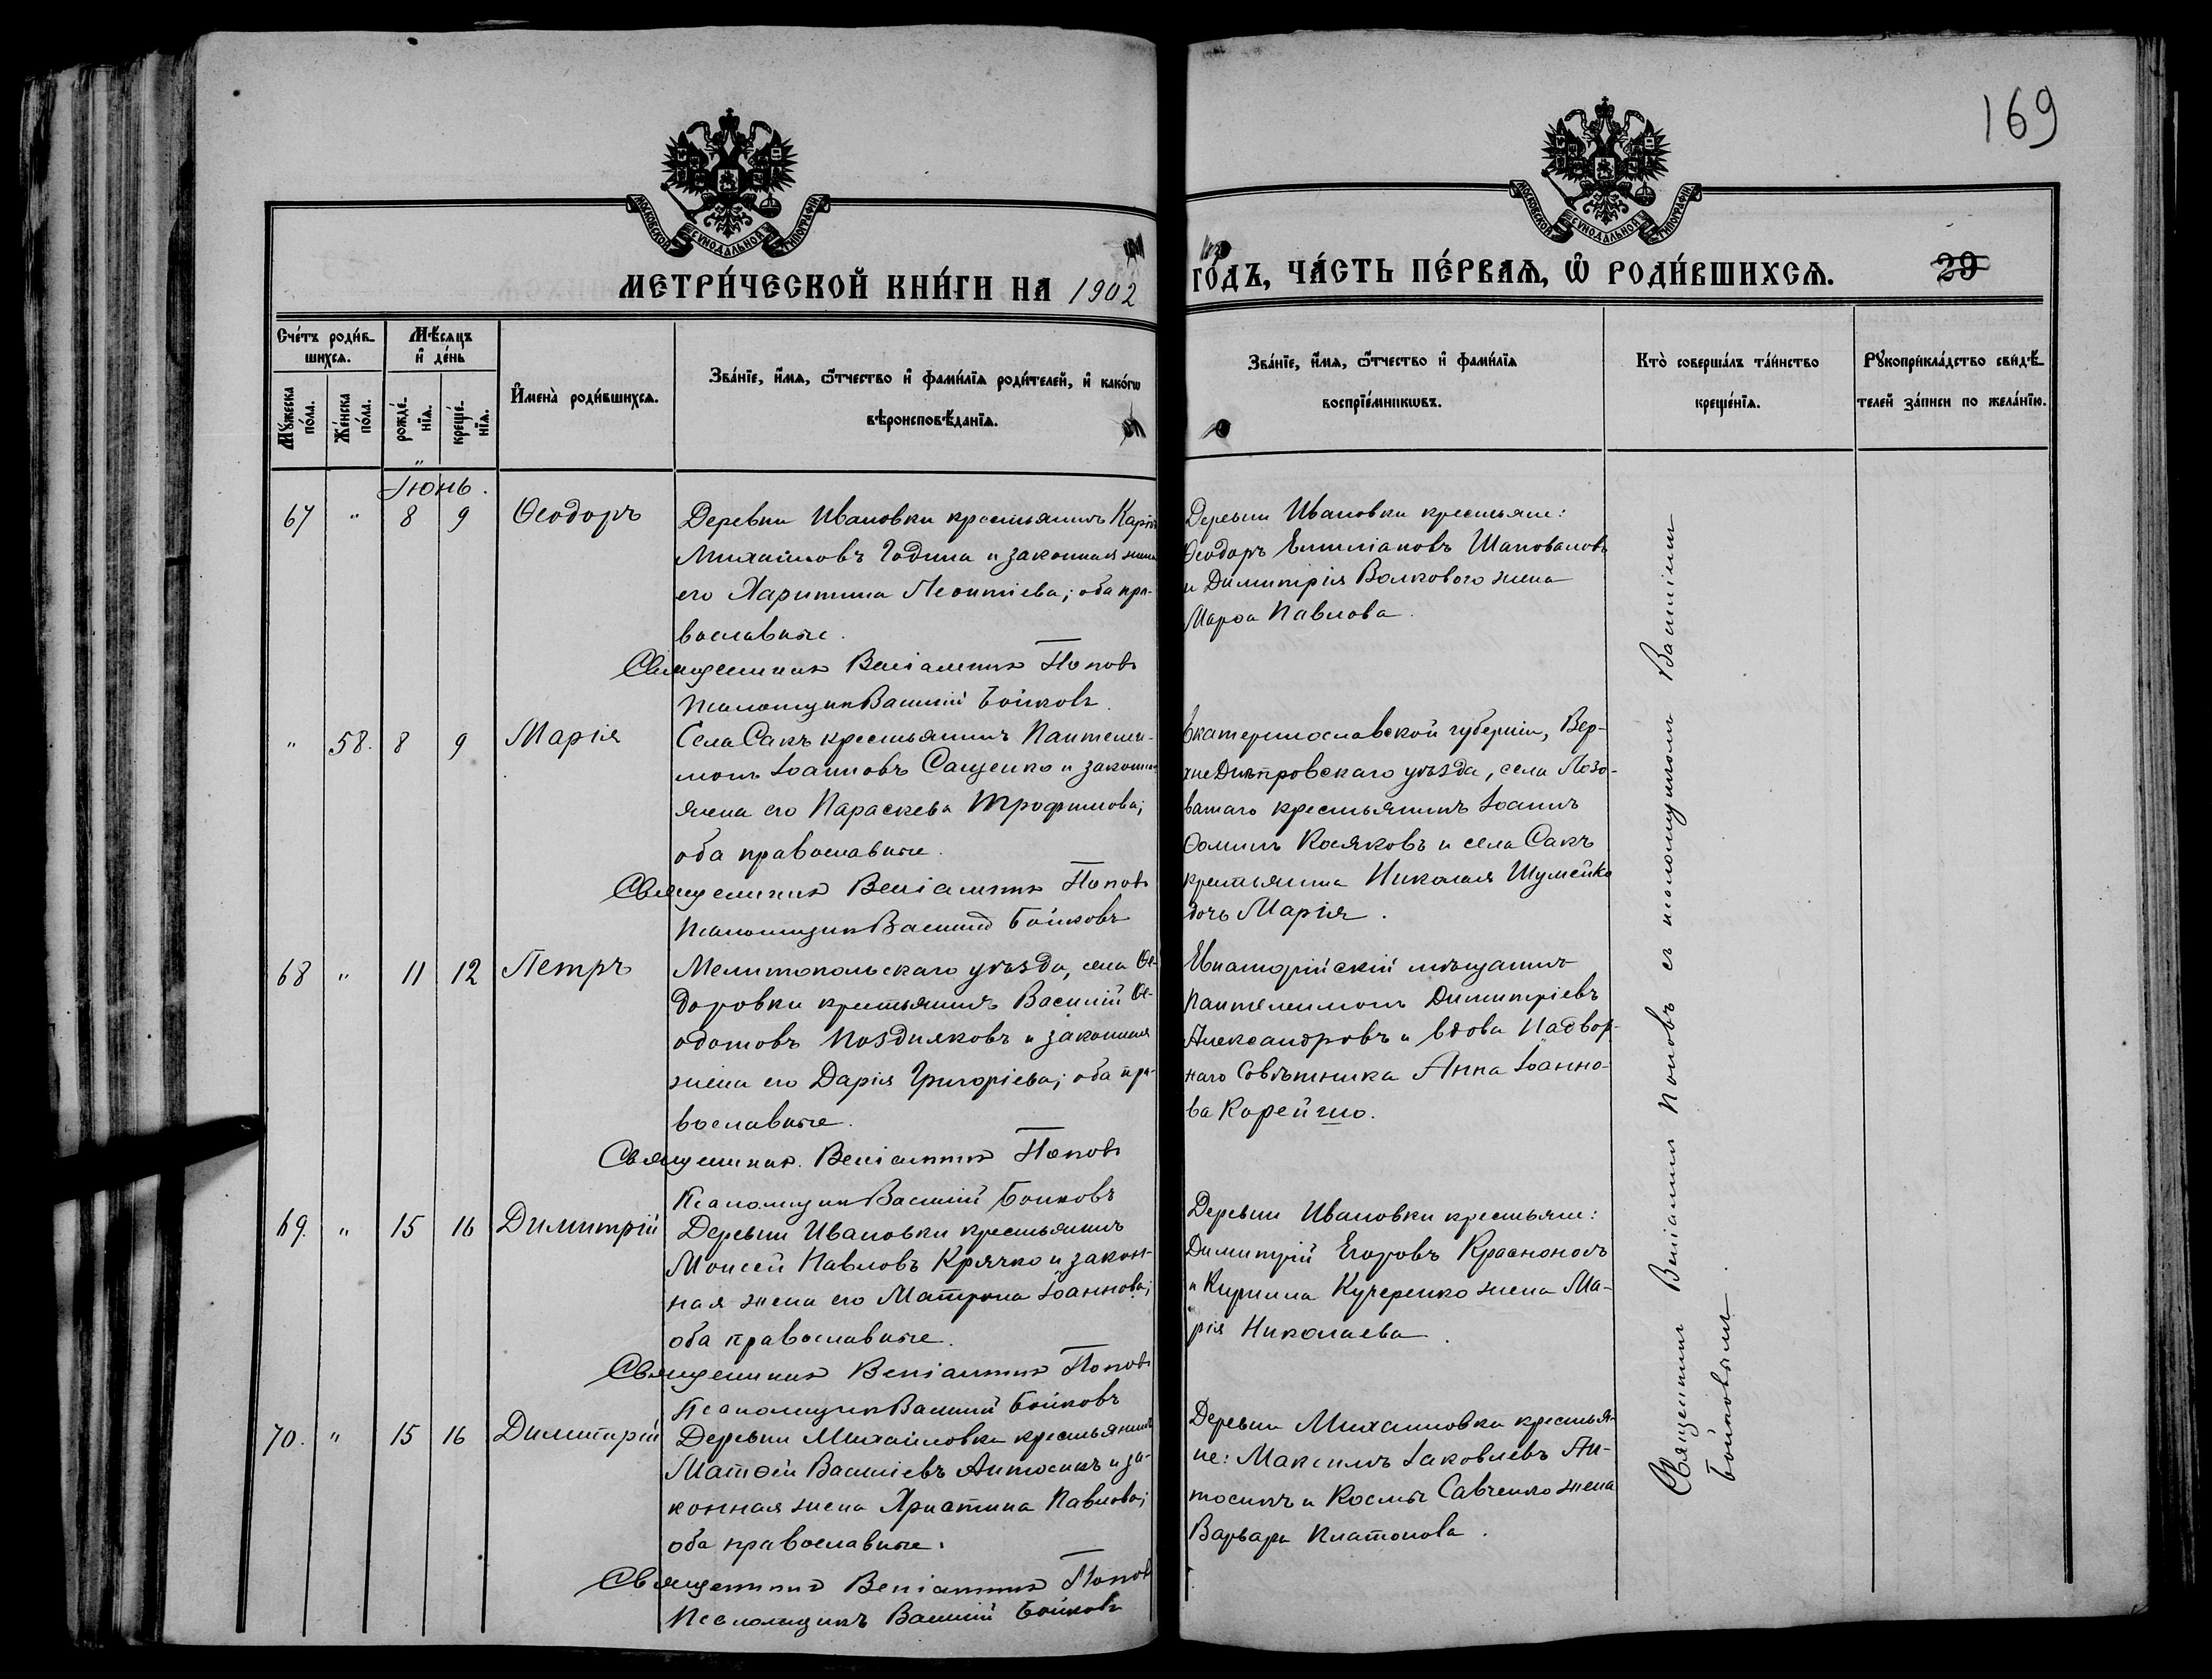 169
МОСКОВСКОЙ СУНОДАЛЬНОЙ ТИПОГРАФІИ
МОСКОВСКОЙ СУНОДАЛЬНОЙ ТИПОГРАФІИ
МЕТРИ́ЧЕСКОЙ КНИ́ГИ НА 1902
ГО́ДЪ, ЧА́СТЬ ПЕ́РВАѦ, Ѽ РОДИ́ВШИХСѦ.
29
Сче́тъ роди́в-
шихсѧ.
Мѣ́сѧцъ
и҆ де́нь
Му́жеска
по́ла.
Же́нска
по́ла.
рожде́-
нїѧ.
креще́-
нїѧ.
И҆мена̀ роди́вшихсѧ.
Зва́нїе, и҆́мѧ, ѻ҆́тчество и҆ фами́лїѧ роди́телей, и҆ како́гѡ
вѣроисповѣ́данїѧ.
Зва́нїе, и҆́мѧ, ѻ҆́тчество и҆ фами́лїѧ
воспрїе́мникѡвъ.
Кто̀ соверша́лъ та́инство
креще́нїѧ.
Рꙋкоприкла́дство свидѣ́-
телей за́писи по жела́нїю.
Іюнь.
67 " 8 9 Ѳеодоръ
Деревни Ивановки крестьянинъ Карпъ
Михаиловъ Година и законная жена
его Харитина Леонтіева; оба пра-
вославные.
Священникъ Веніаминъ Поповъ
Псаломщикъ Василій Бойковъ.
Деревни Ивановки крестьяне:
Ѳеодоръ Емиліановъ Шаповаловъ
и Димитрія Волкового жена
Марѳа Павлова.
" 58. 8 9 Марія
Села Сакъ крестьянинъ Пантелей-
монъ Іоанновъ Сащенко и законная
жена его Параскева Трофимова;
оба православные.
Священникъ Веніаминъ Поповъ
Псаломщикъ Василій Бойковъ
Екатеринославской губерніи, Вер-
хнеДнѣпровскаго уѣзда, села Лозо-
ватаго крестьянинъ Іоаннъ
Ѳоминъ Косяковъ и села Сакъ
крестьянина Николая Шумейко
дочь Марія.
68 " 11 12 Петръ
Мелитопольскаго уѣзда, села Ѳе-
доровки крестьянинъ Василій Ѳе-
одотовъ Поздняковъ и законная
жена его Дарія Григоріева; оба пра-
вославные.
Священникъ Веніаминъ Поповъ
Псаломщикъ Василій Бойковъ
Евпаторійскій мѣщанинъ
Пантелеимонъ Димитріевъ
Александровъ и вдова Надвор-
наго Совѣтника Анна Іоанно-
ва Корейшо.
69. " 15 16 Димитрій
Деревни Ивановки крестьянинъ
Моисей Павловъ Крячко и закон-
ная жена его Матрона Іоаннова;
оба православные.
Священникъ Веніаминъ Поповъ
Псаломщикъ Василій Бойковъ
Деревни Ивановки крестьяне:
Димитрій Егоровъ Красноносъ
и Кирилла Кучеренко жена Ма-
рія Николаева.
70. " 15 16 Димитрій
Деревни Михайловки крестьянинъ
Матѳей Василіевъ Антосикъ и за-
конная жена Христина Павлова;
оба православные.
Священникъ Веніаминъ Поповъ
Псаломщикъ Василій Бойковъ
Деревни Михаиловки крестья-
не: Максимъ Іаковлевъ Ан-
тосикъ и Космы Савченко жена
Варвара Платонова.
Священникъ Веніаминъ Поповъ съ псаломщикомъ Василіемъ
Бойковымъ.